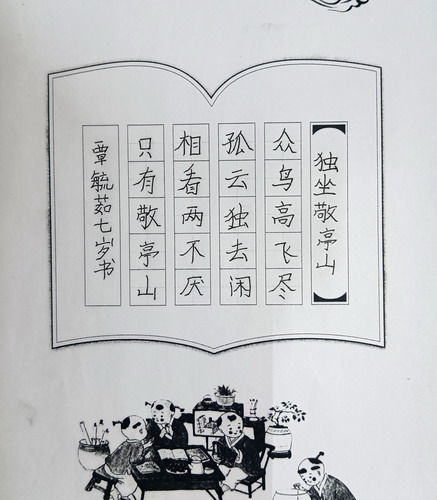 独坐敬亭山
众鸟高飞尽
孤云独去闲
相看两不厌
只有敬亭山
覃毓茹七岁书